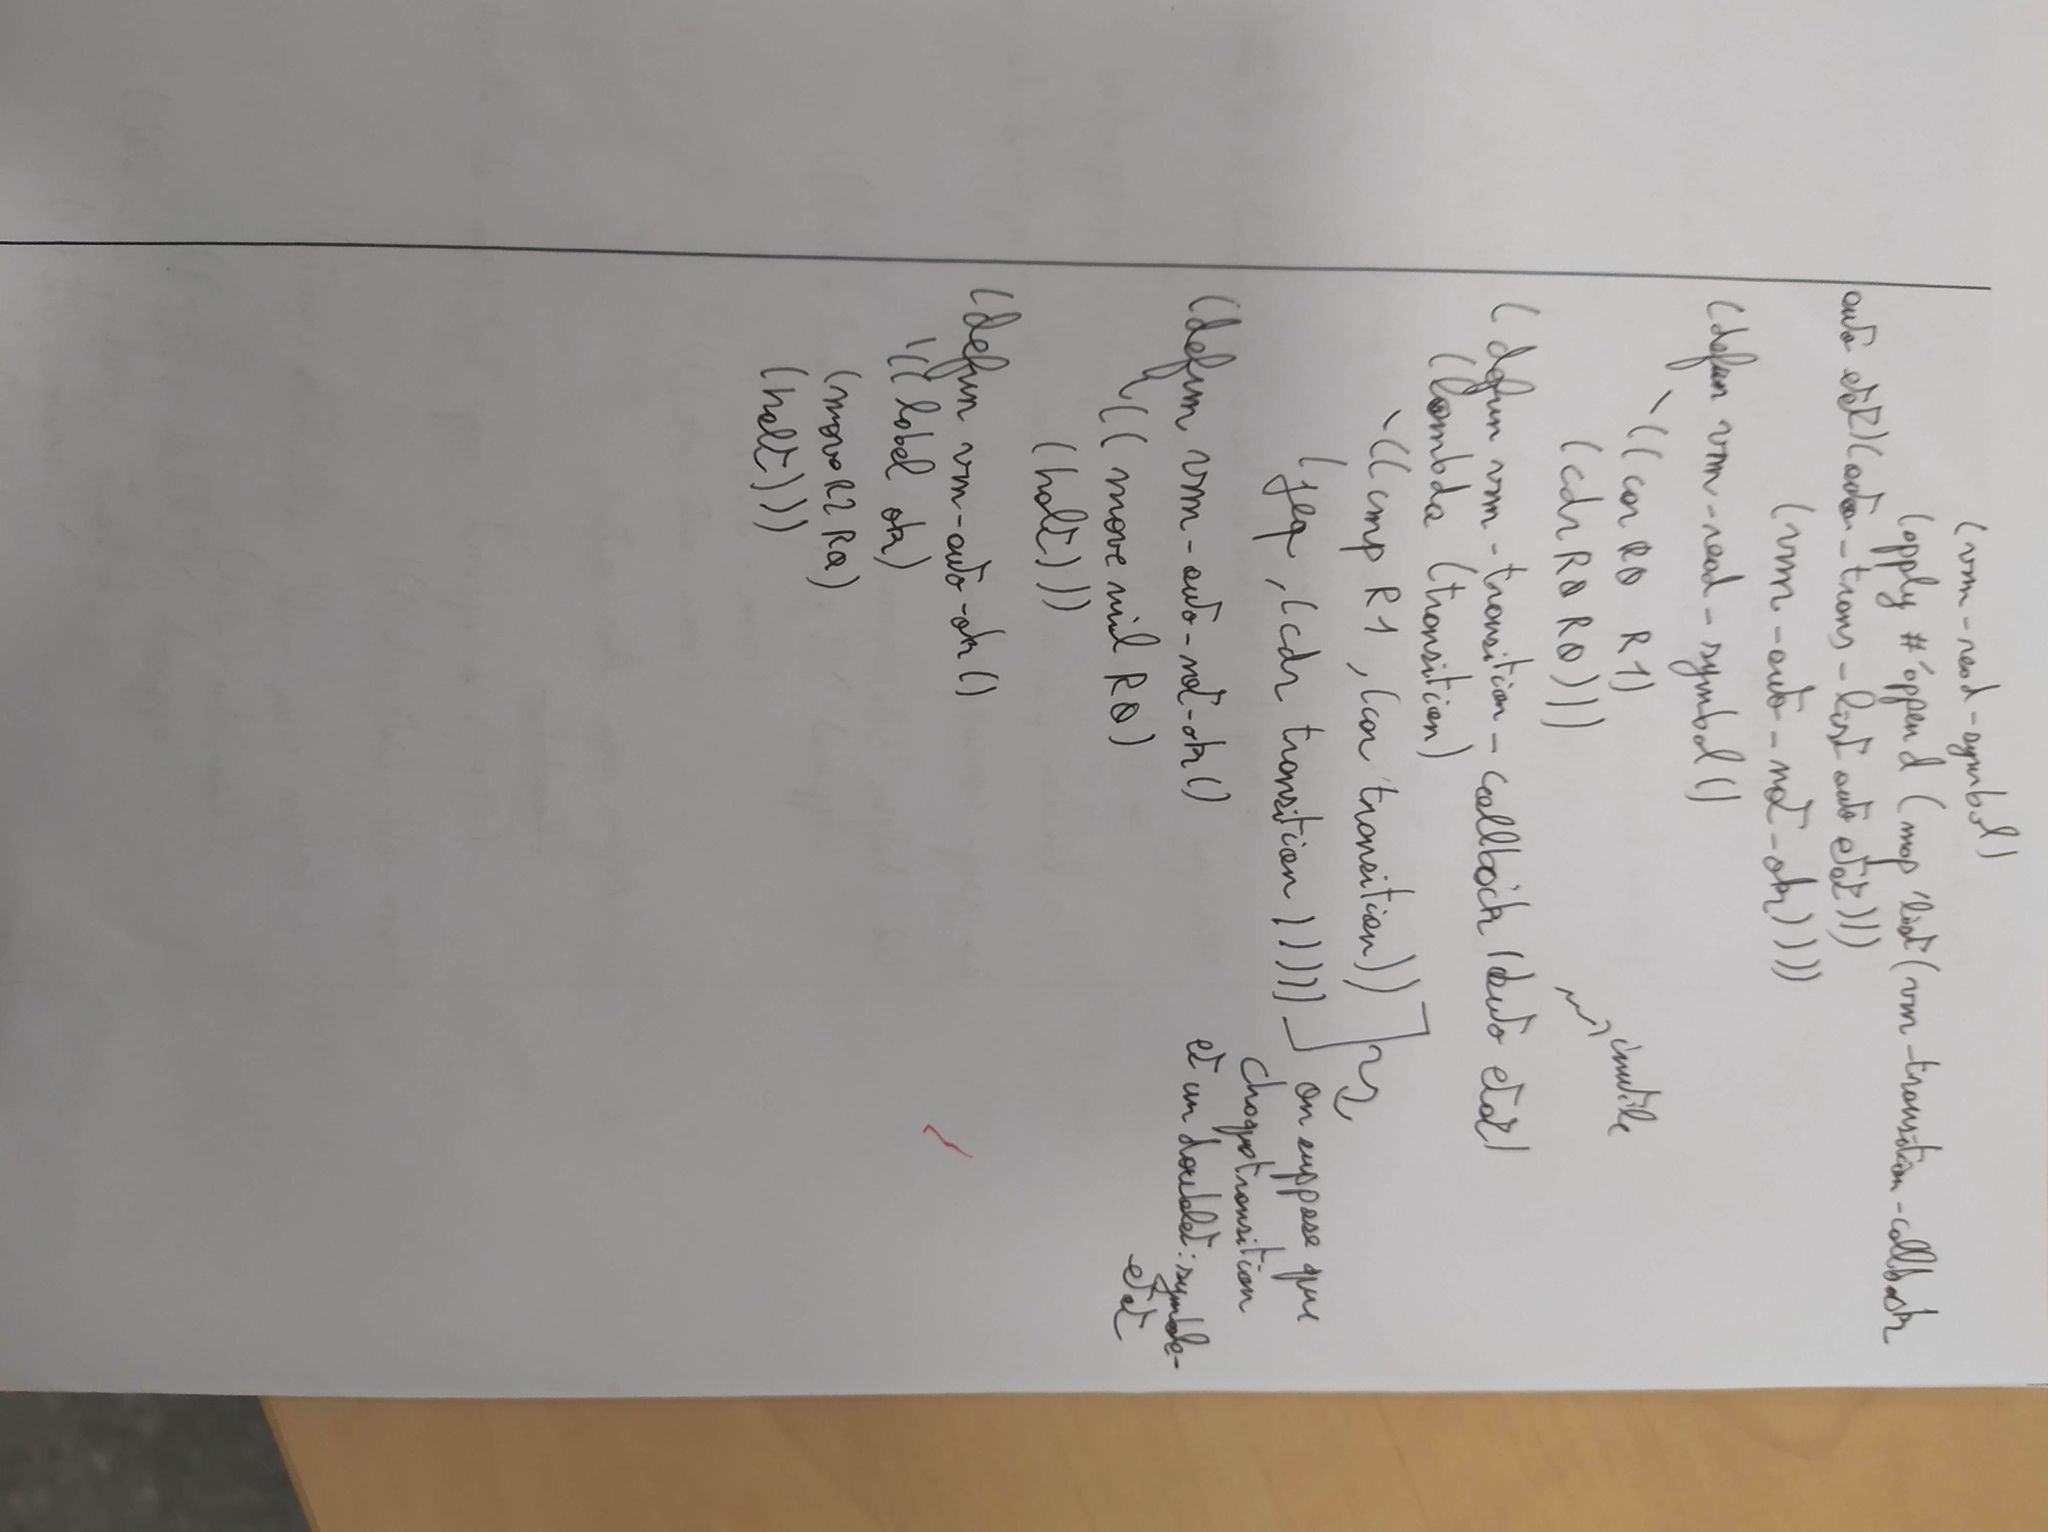 (vm-read-symbol)
(apply #'append (map 'list (vm-transition-callback
auto etat) (auto-trans-list auto etat)))
(vm-auto-not-ok))))
(defun vm-read-symbol ()
`((car R0 R1)
(cdr R0 R0)))
inutile
(defun vm-transition-callback (auto etat)
(lambda (transition)
`((cmp R1 ,(car transition))
(jeq ,(cdr transition)))))
on suppose que
chaque transition
et un doublet : symbole-
etat
(defun vm-auto-not-ok ()
`((move nil R0)
(halt)))
(defun vm-auto-ok ()
'((label ok)
(move R2 R0)
(halt)))